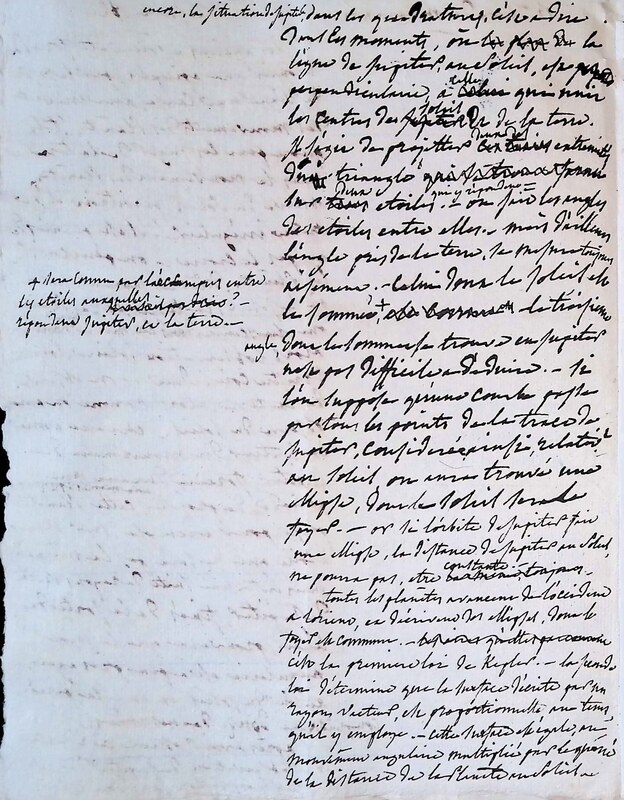 encore, la situation de jupiter dans les quadratures, c'est a dire
dans les moments, où la
ligne de jupiter, au soleil, est
perpendiculaire, à celle qui unit
les centres du soleil et de la terre.
il s'agit de projetter
triangle
sur deux etoiles. – on sait les angles
des etoiles entre elles. – mais d'ailleurs
l'angle pris de la terre, se mesure toujours
aisément. – celui dont le soleil est
le sommet, + la troisieme
+ sera connu par l'écart entre
les etoiles auxquelles
répondent jupiter, et la terre. –
angle, dont le sommet se trouve en jupiter
n'est pas difficile a déduire. – si
l'on suppose qu'une courbe passe
par tous les points de la trace de
jupiter, considerée ainsi, relativt
au soleil, on aura trouvé une
ellipse, dont le soleil sera le
foyer. – or si l'orbite de jupiter fait
une ellipse, la distance de jupiter au soleil
ne pourra pas, etre constante. –
toutes les planetes avancent de l'occident
a l'orient, et décrivent des ellipses, dont le
foyer est commun. –
c'est la premiere loi de Kepler. – la seconde
loi détermine que la surface décrite par un
rayon vecteur, est proportionnelle au tems
qu'il y employe. – cette surface est égale, au
mouvement angulaire multiplié par le quarré
de la distance de la planete au soleil. –